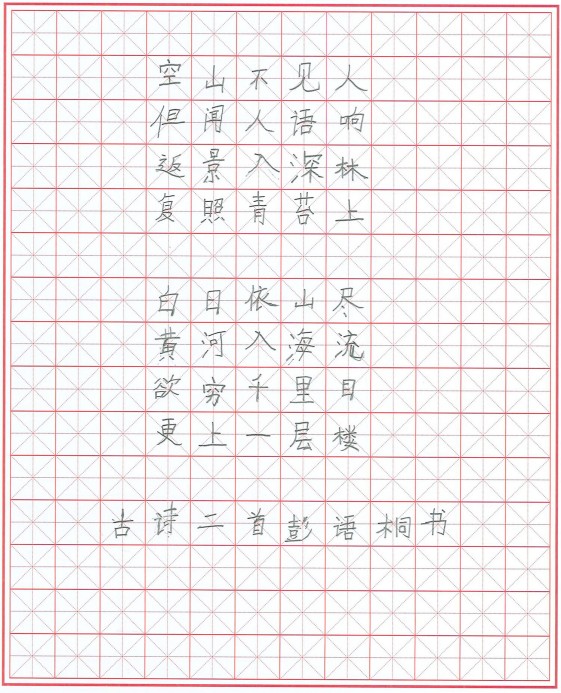 空山不见人
但闻人语响
返景入深林
复照青苔上
白日依山尽
黄河入海流
欲穷千里目
更上一层楼
古诗二首彭语桐书